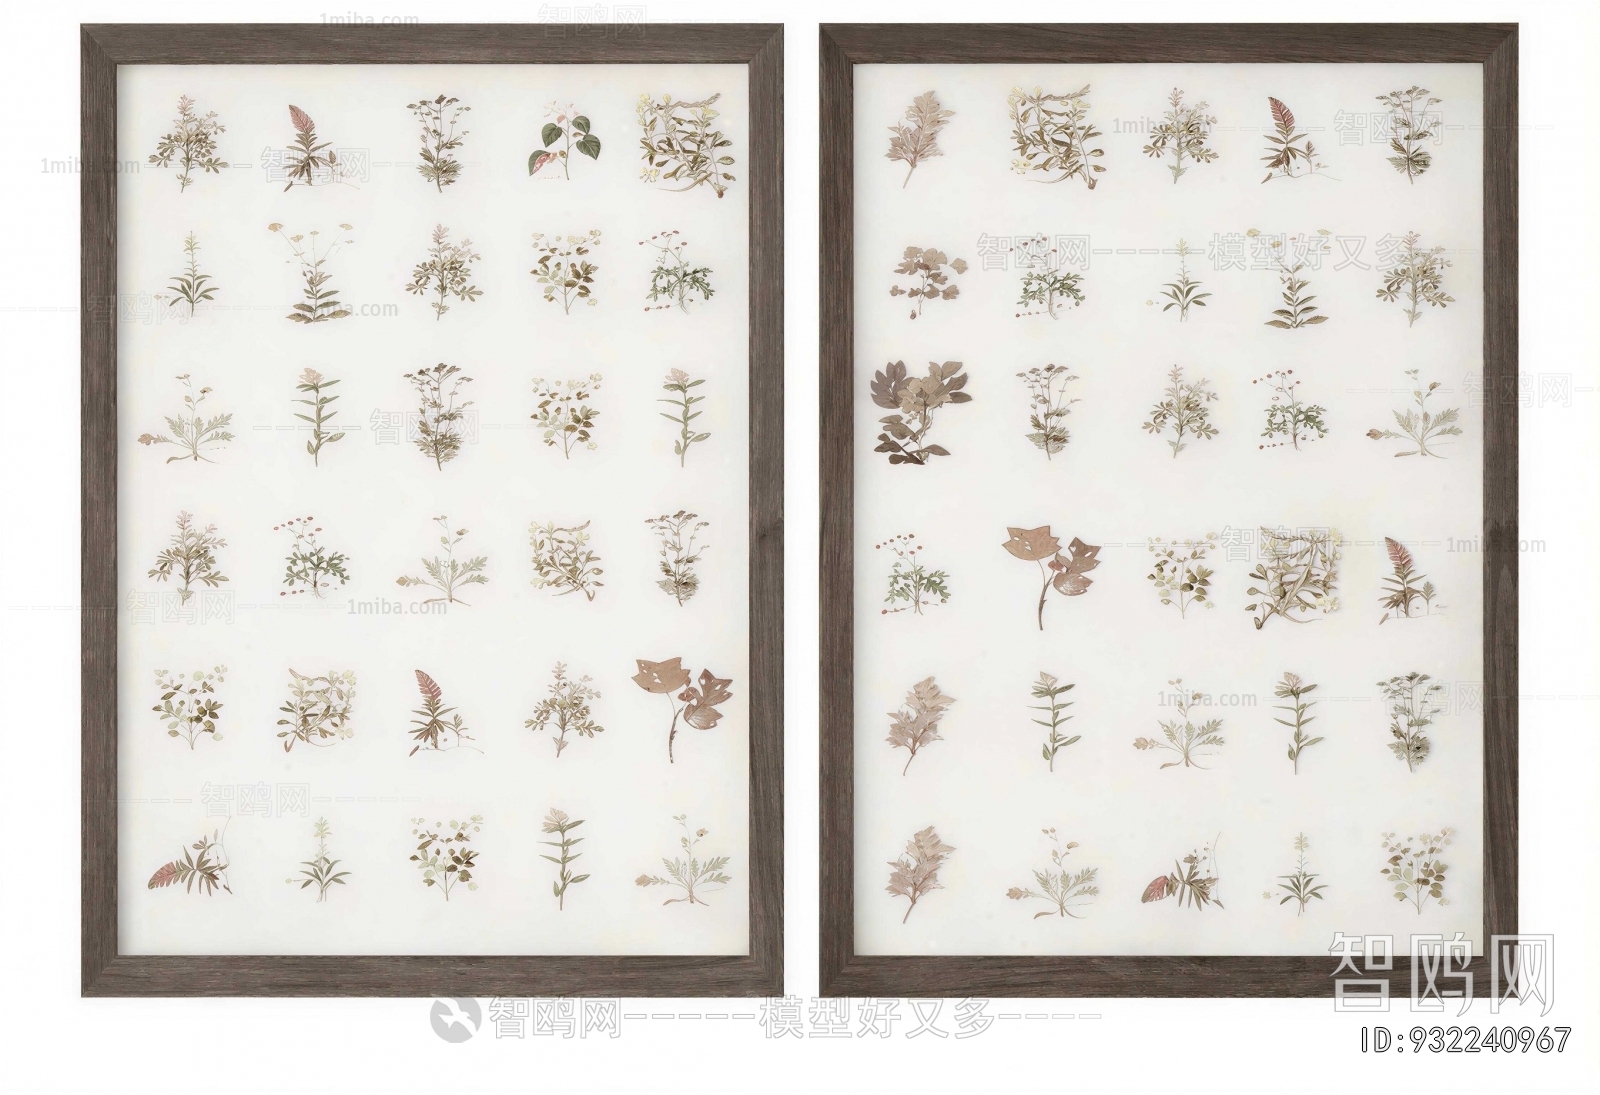 1miba.com
智鸥网
1miba.com
智鸥网
1miba.com
智鸥网
智鸥网-----模型好又多
智鸥网
1miba.com
智鸥网
智鸥网
智鸥网
1miba.com
智鸥网
1miba.com
1miba.com
智鸥网
智鸥网
智鸥网
智鸥网-----模型好又多----
ID:932240967